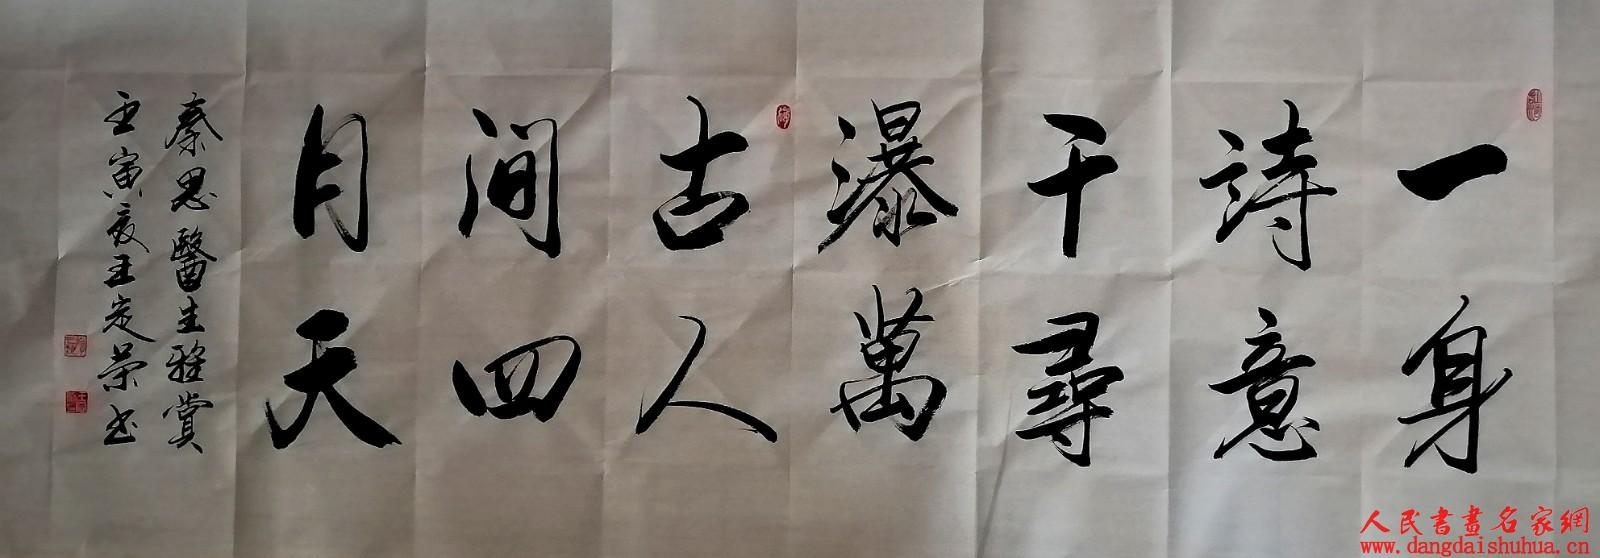 一身
詩意
千尋
瀑萬
古人
间四
月天
秦思醫生雅賞
壬寅夏王定榮书
人民書畫名家網
www.dangdaishuhua.cn